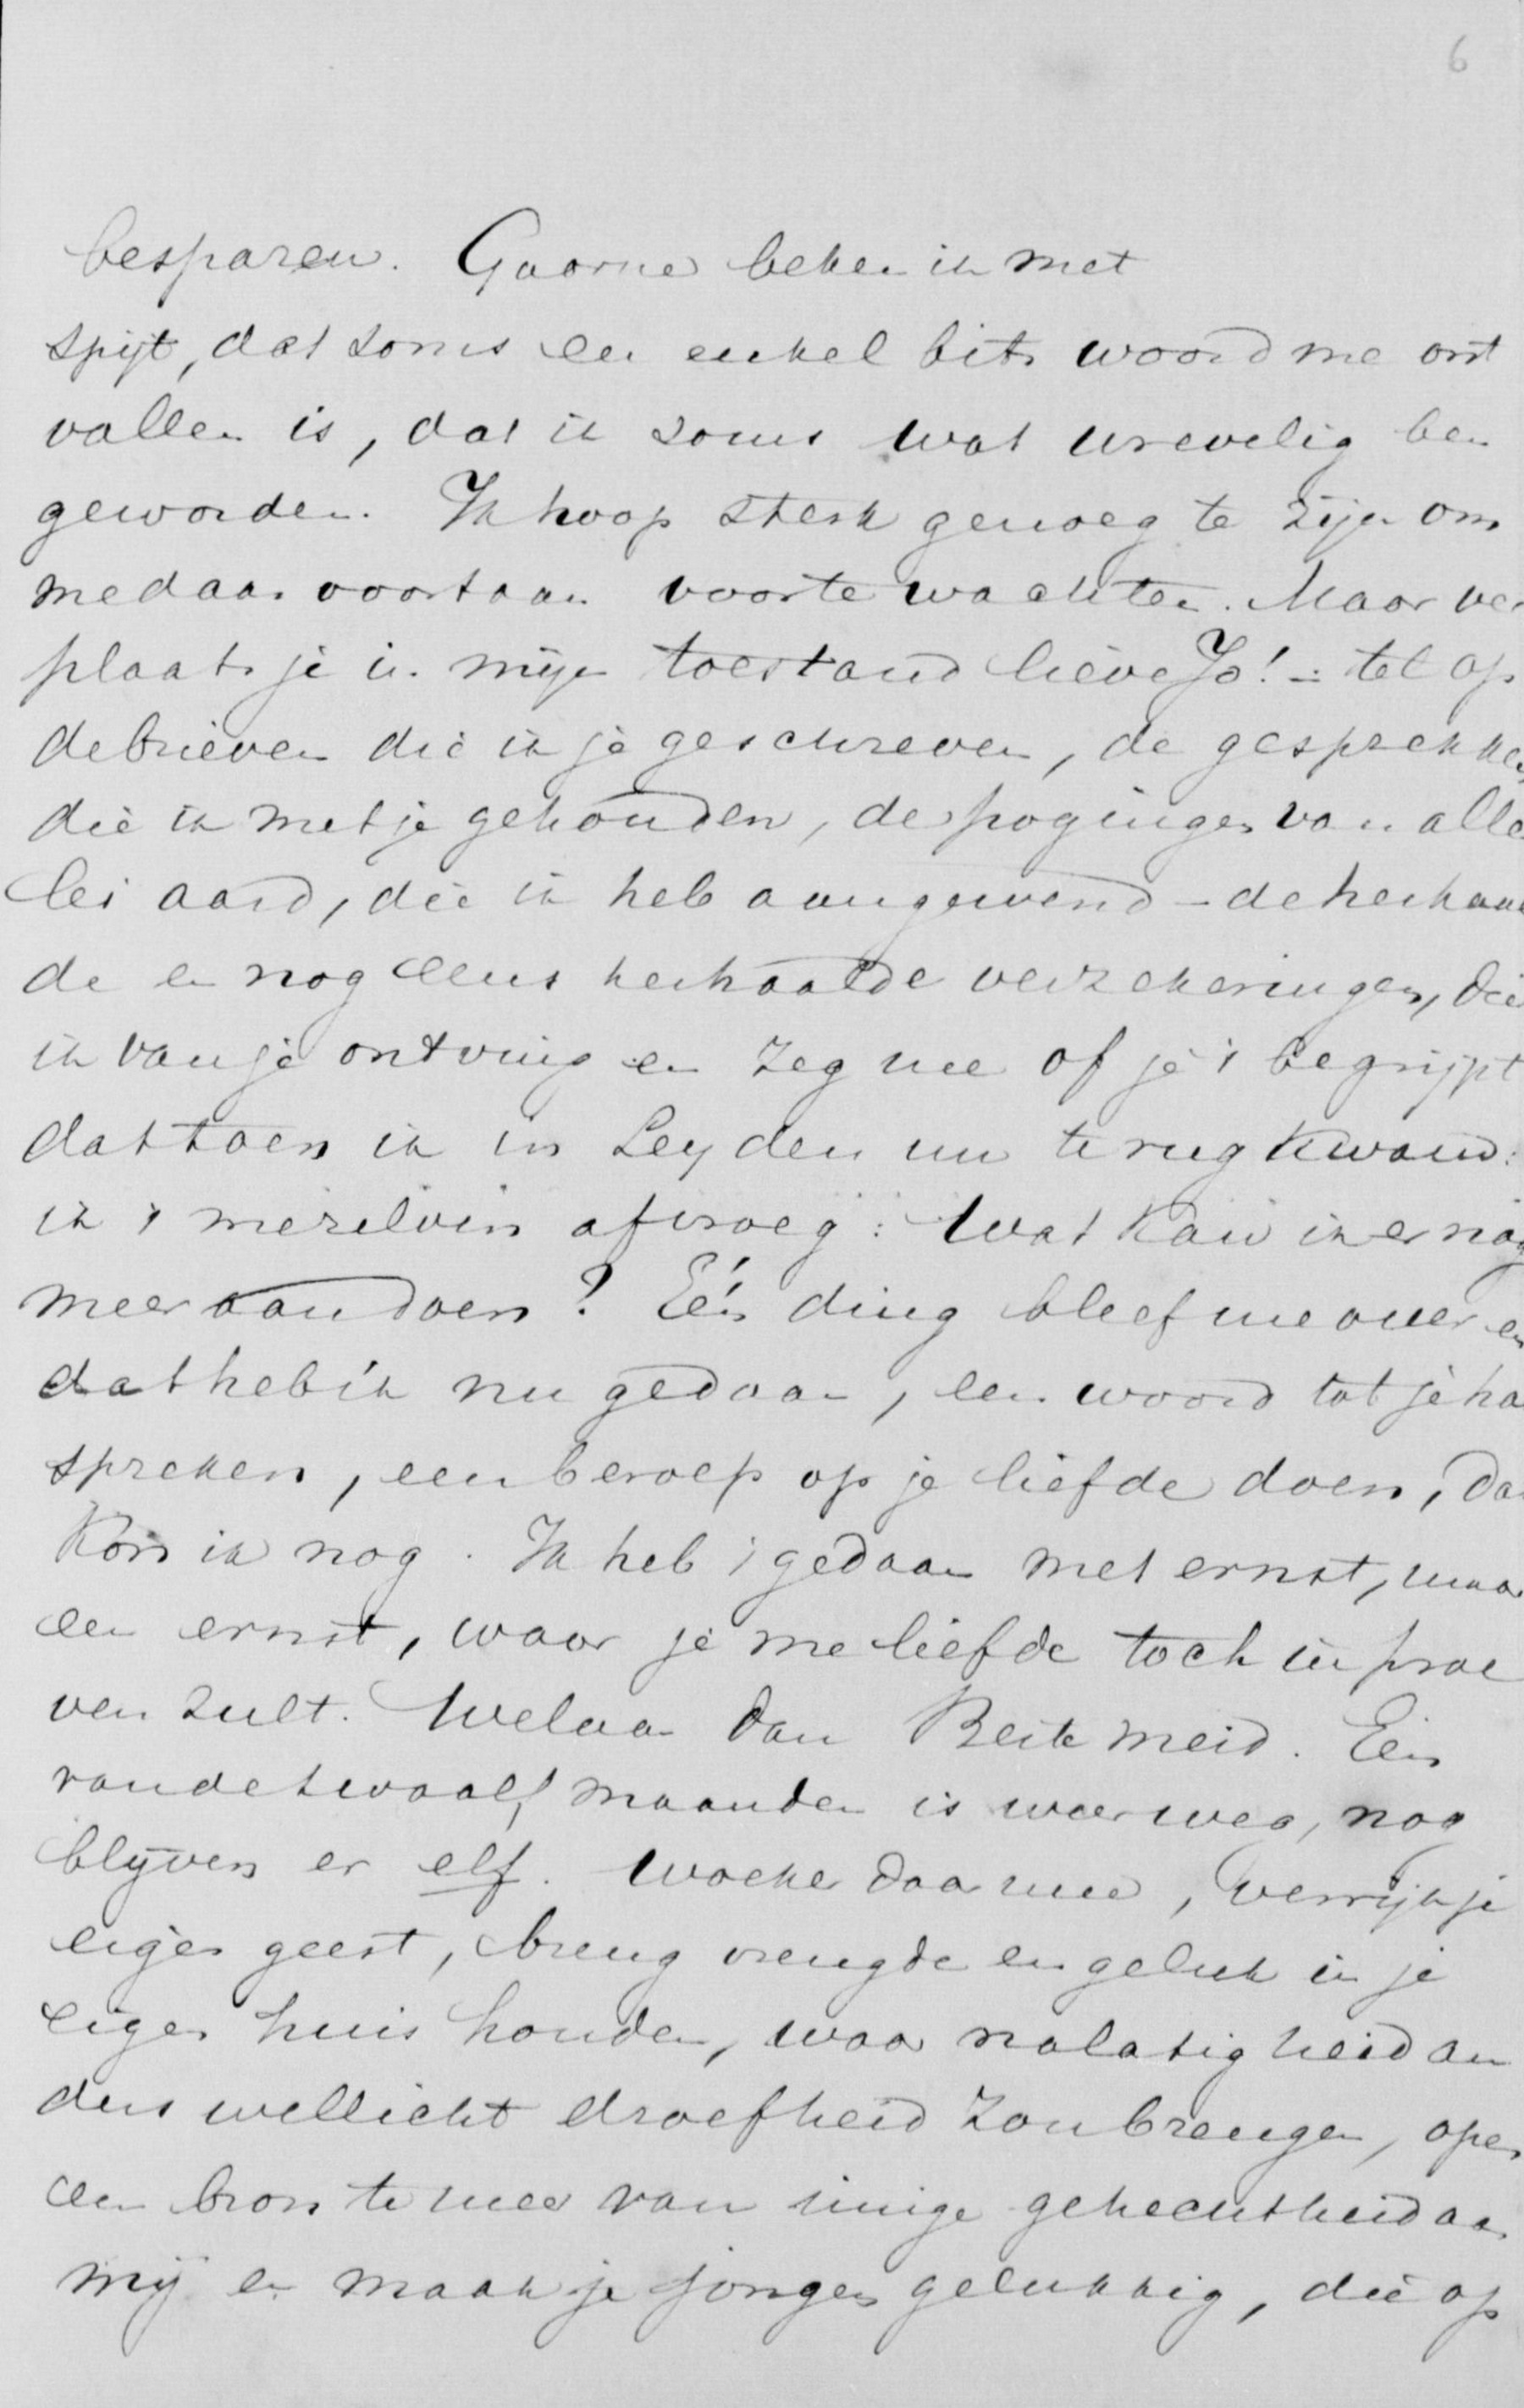 6
besparen. Gaarne beken ik met
spijt, dat soms een enkel bits woord me ont
vallen is, dat ik soms wat wrevelig ben
geworden. Ik hoop sterk genoeg te zijn om
me daar voortaan voor te wachten. Maar ver
plaats je in mijn toestand lieve Jo! - tel op
de brieven die ik je geschreven, de gesprekken
die ik met je gehouden, de pogingen van aller
lei aard, die ik heb aangewend - de herhaal
de en nog eens herhaalde verzekeringen, die
ik van je ontving en zeg me of je 't begrijpt
dat toen ik in Leyden nu terugkwam:
ik 't mezelven afvroeg: Wat kan ik er nog
meer aan doen? Eén ding bleef me over en
dat heb ik nu gedaan, een woord tot je ha
spreken, een beroep op je liefde doen, da
kon ik nog. Ik heb 't gedaan met ernst, maar
een ernst, waar je me liefde toch in proe
ven zult. Welaan dan Beste meid. Eén
van de twaalf maanden is weer weg, nog
blijven er elf. Woeker daarmee, verrijk je
eigen geest, breng vreugde en geluk in je
eigen huishouden, waar nalatigheid an
ders wellicht droefheid zou brengen, open
een bron te meer van innige gehechtheid aan
mij en maak je jongen gelukkig, die op